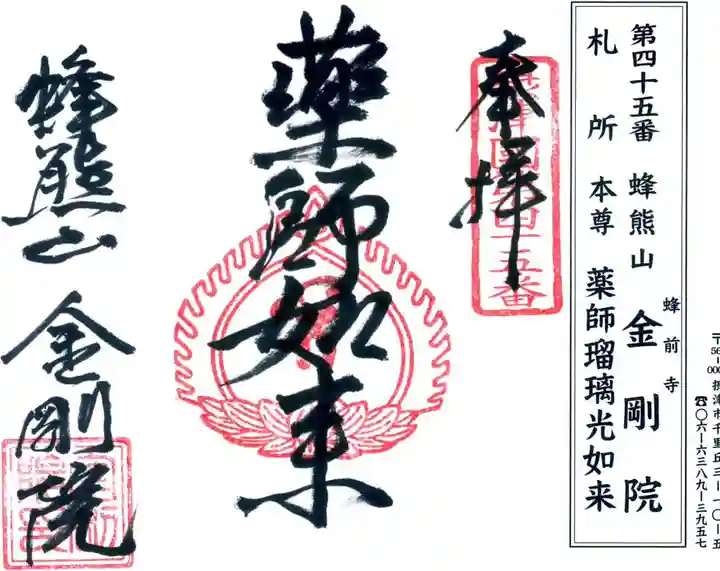 〒56
000 摂津市千里丘三ー一〇ー五
☎〇六ー六三八九ー三九五七
第四十五番 蜂熊山 蜂前寺 金剛院
札所本尊 薬師瑠璃光如来
奉拝
摂津国第四十五番
薬師如来
蜂熊山 金剛院